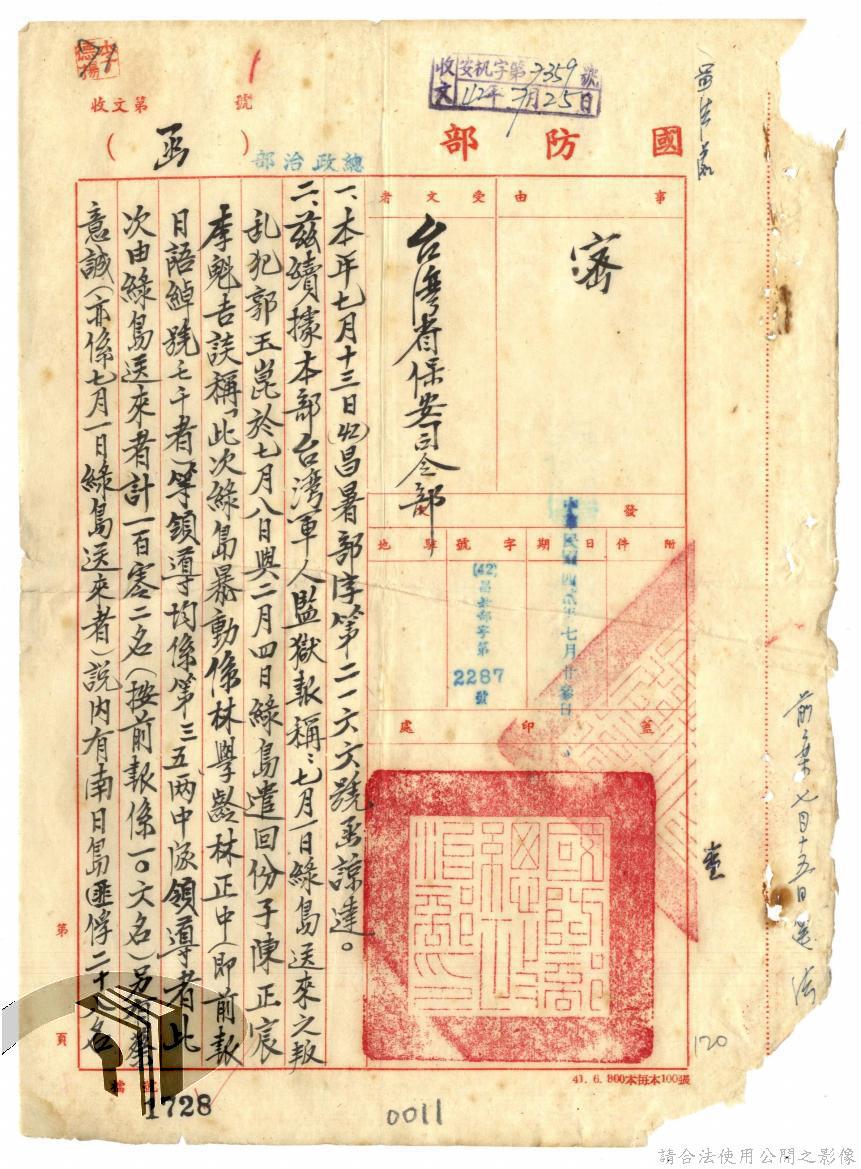 收文 安机字第7359號
42年7月25日
國防部
總政治部
(函)
收文第 號
事由
密
受文者
台灣省保安司令部
附件
日期
中華民國四貳年七月廿參日
字號
(42)昌
第2287號
駐地
蓋印處
一、本年七月十三日(42)昌署部字第二一六六號函諒達。
二、茲續據本部台灣軍人監獄報稱:七月一日綠島送來之叛
乱犯郭玉崑於七月八日與二月四日綠島遣回份子陳正宸
李魁吉談稱「此次綠島暴動係林學齡林正中(即前報
日語綽號モ干者)等領導均係第三五两中隊領導者此
次由綠島送來者計一百零二名(按前報係一〇六名)另有蔡
意誠(亦係七月一日綠島送來者)說內有南日島匪俘二十九名
前案七月十五日
查
120
41. 6. 800本每本100張
第 頁
檔號
1728
0011
請合法使用公開之影像